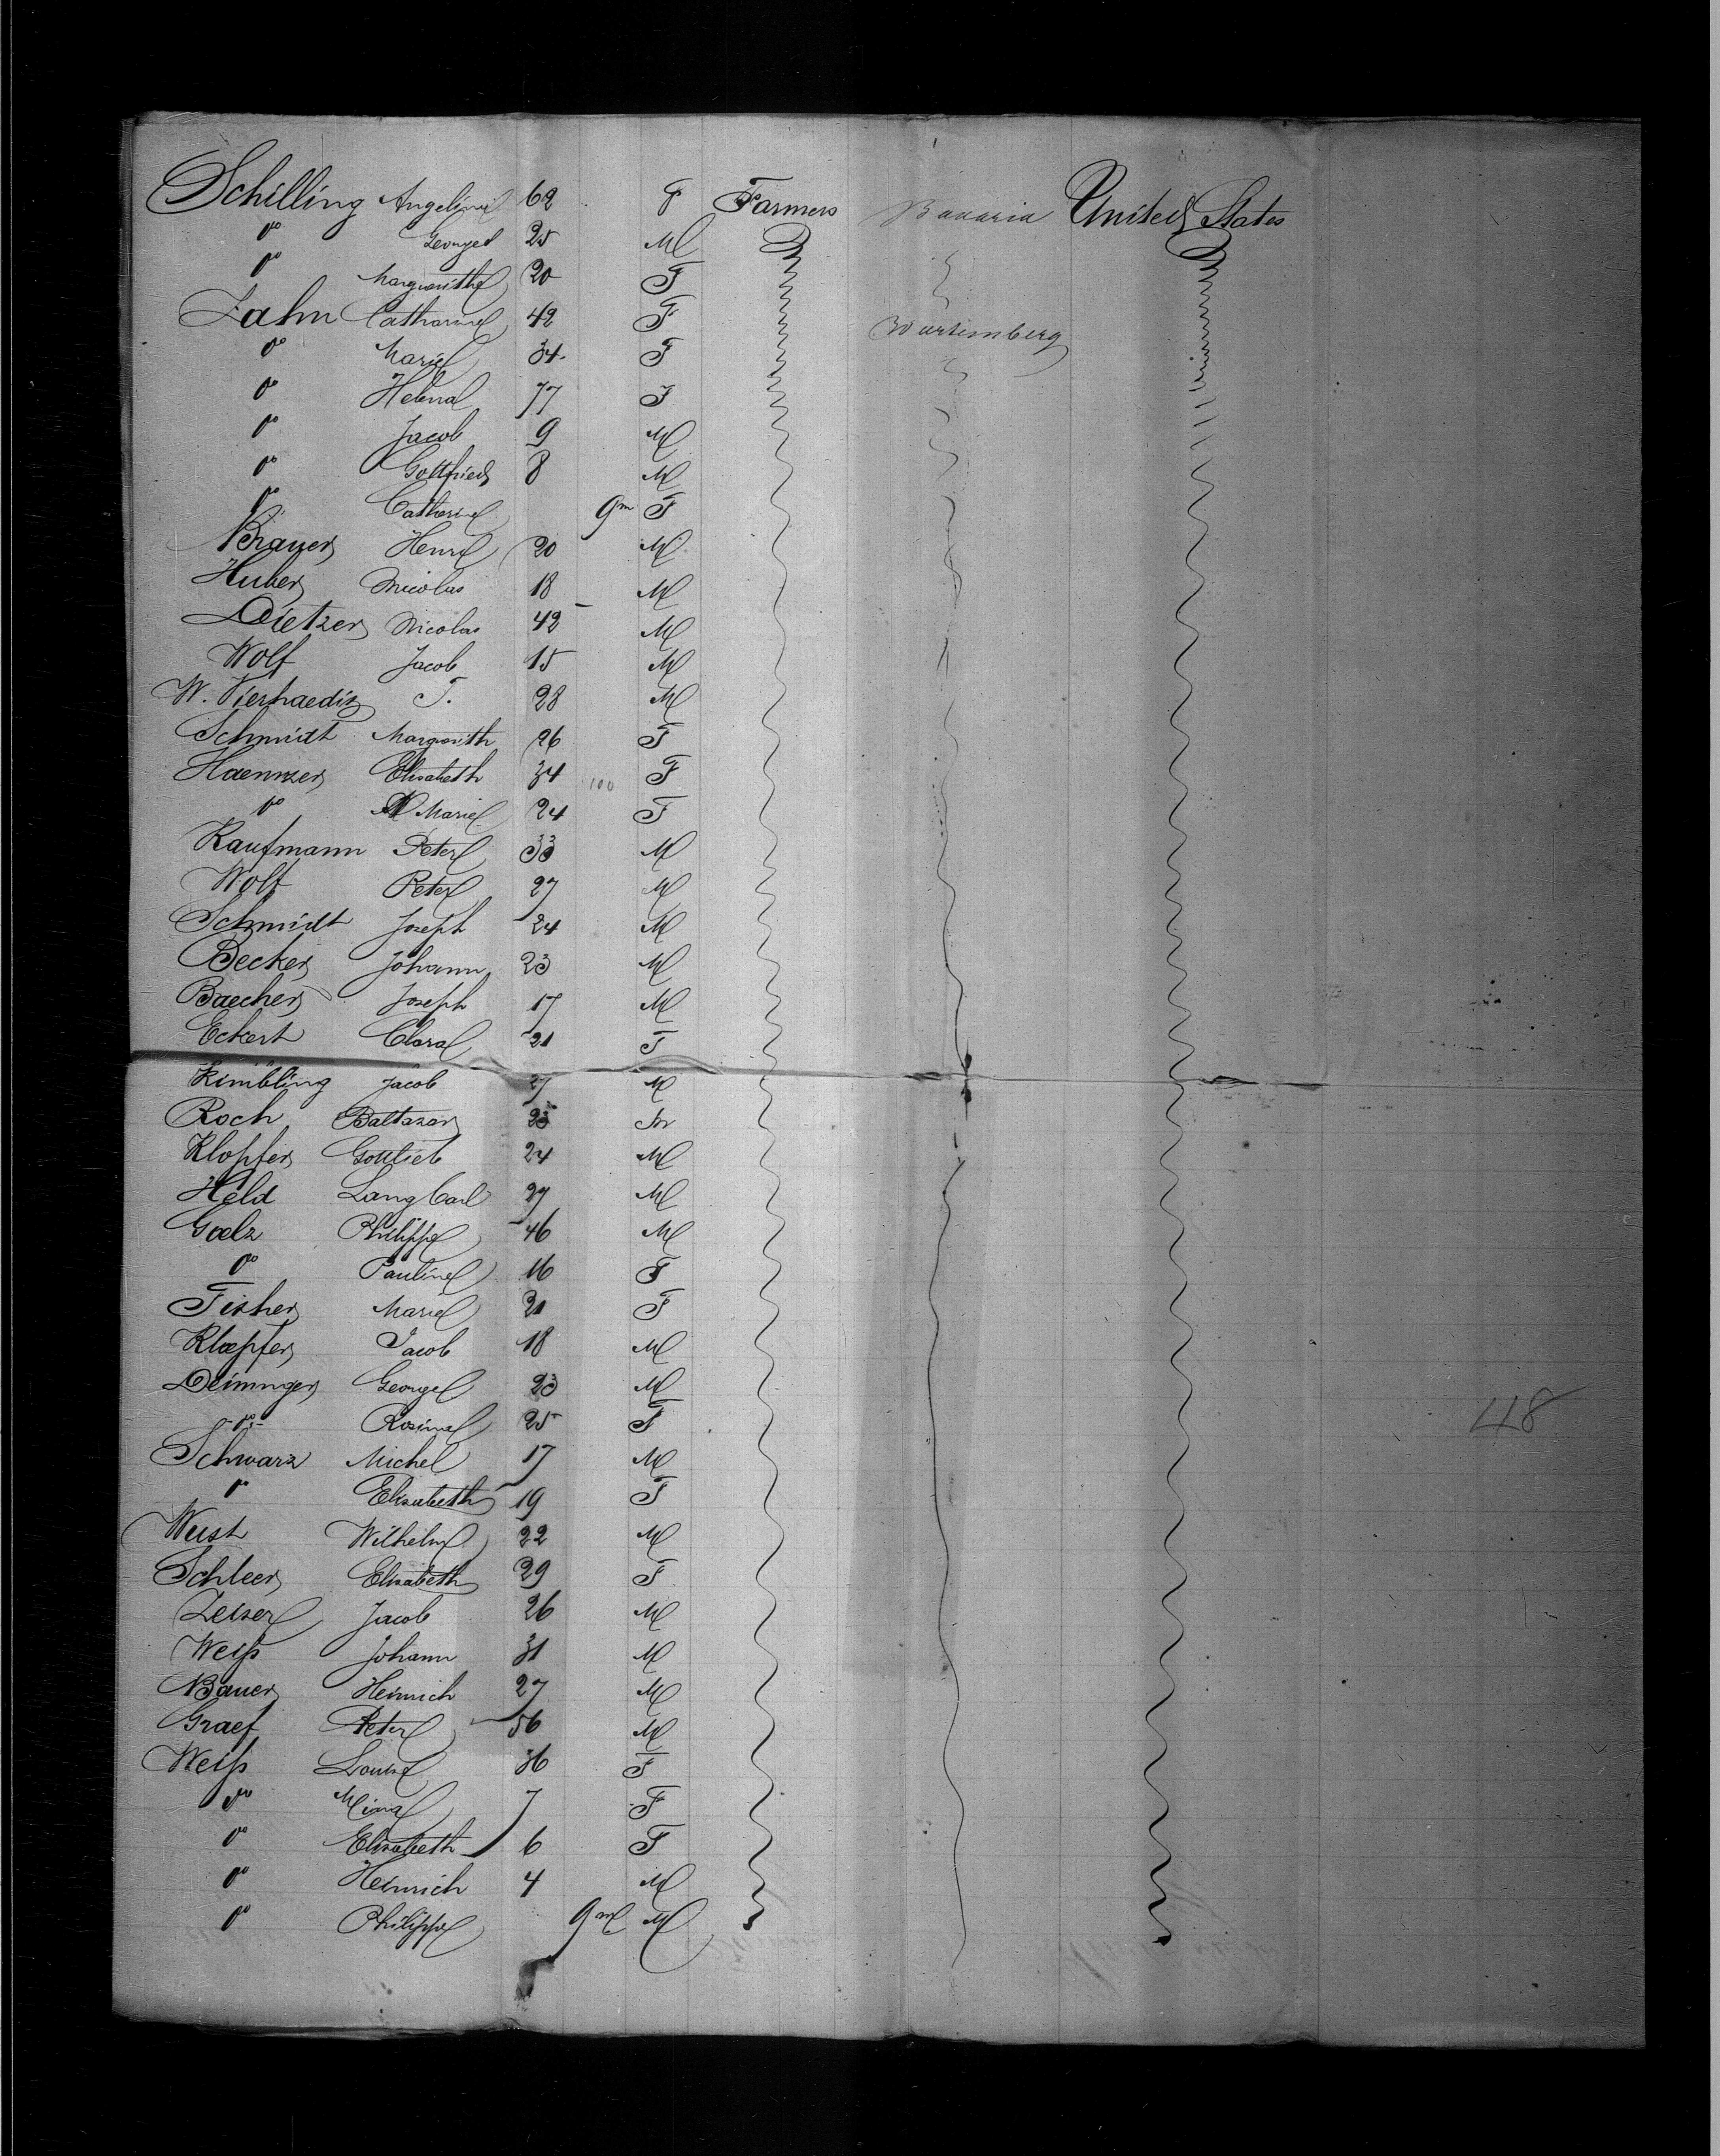 Schilling Angelina 62 F Farmers Bavaria United States
do George 25 M
do Margarithe 20 F
Zahn Catharine 42 F Wurtemberg
do Marie 34 F
do Helena 77 F
do Jacob 9 M
do Gottfried 8 M
do Catherine 9m F
Brauer Henri 20 M
Huber Nicolas 18 M
Dietzer Nicolas 42 M
Wolf Jacob 15 M
W. Vierhaedig T. 28 M
Schmidt Margarith 26 F
Haenzer Elisabeth 34 100 F
do Marie 24 F
Kaufmann Peter 33 M
Wolf Peter 27 M
Schmidt Joseph 24 M
Becker Johann 23 M
Baecher Joseph 17 M
Eckert Clara 21 F
Kimbling Jacob 27 M
Roch Baltazar 23 M
Klopfer Gottlieb 24 M
Held Lang Carl 27 M
Goelz Philippe 46 M
do Pauline 16 F
Fisher Marie 21 F
Kloepfer Jacob 18 M
Deininger George 23 M
do Rosina 25 F
Schwarz Michel 17 M
do Elisabeth 19 F
Wust Wilhelm 22 M
Schleer Elisabeth 29 F
Zeizer Jacob 26 M
Weiß Johann 31 M
Bauer Heinrich 27 M
Graef Peter 56 M
Weiß Louise 36 F
do Mina 7 F
do Elisabeth 6 F
do Heinrich 4 M
do Philippe 9m M
418